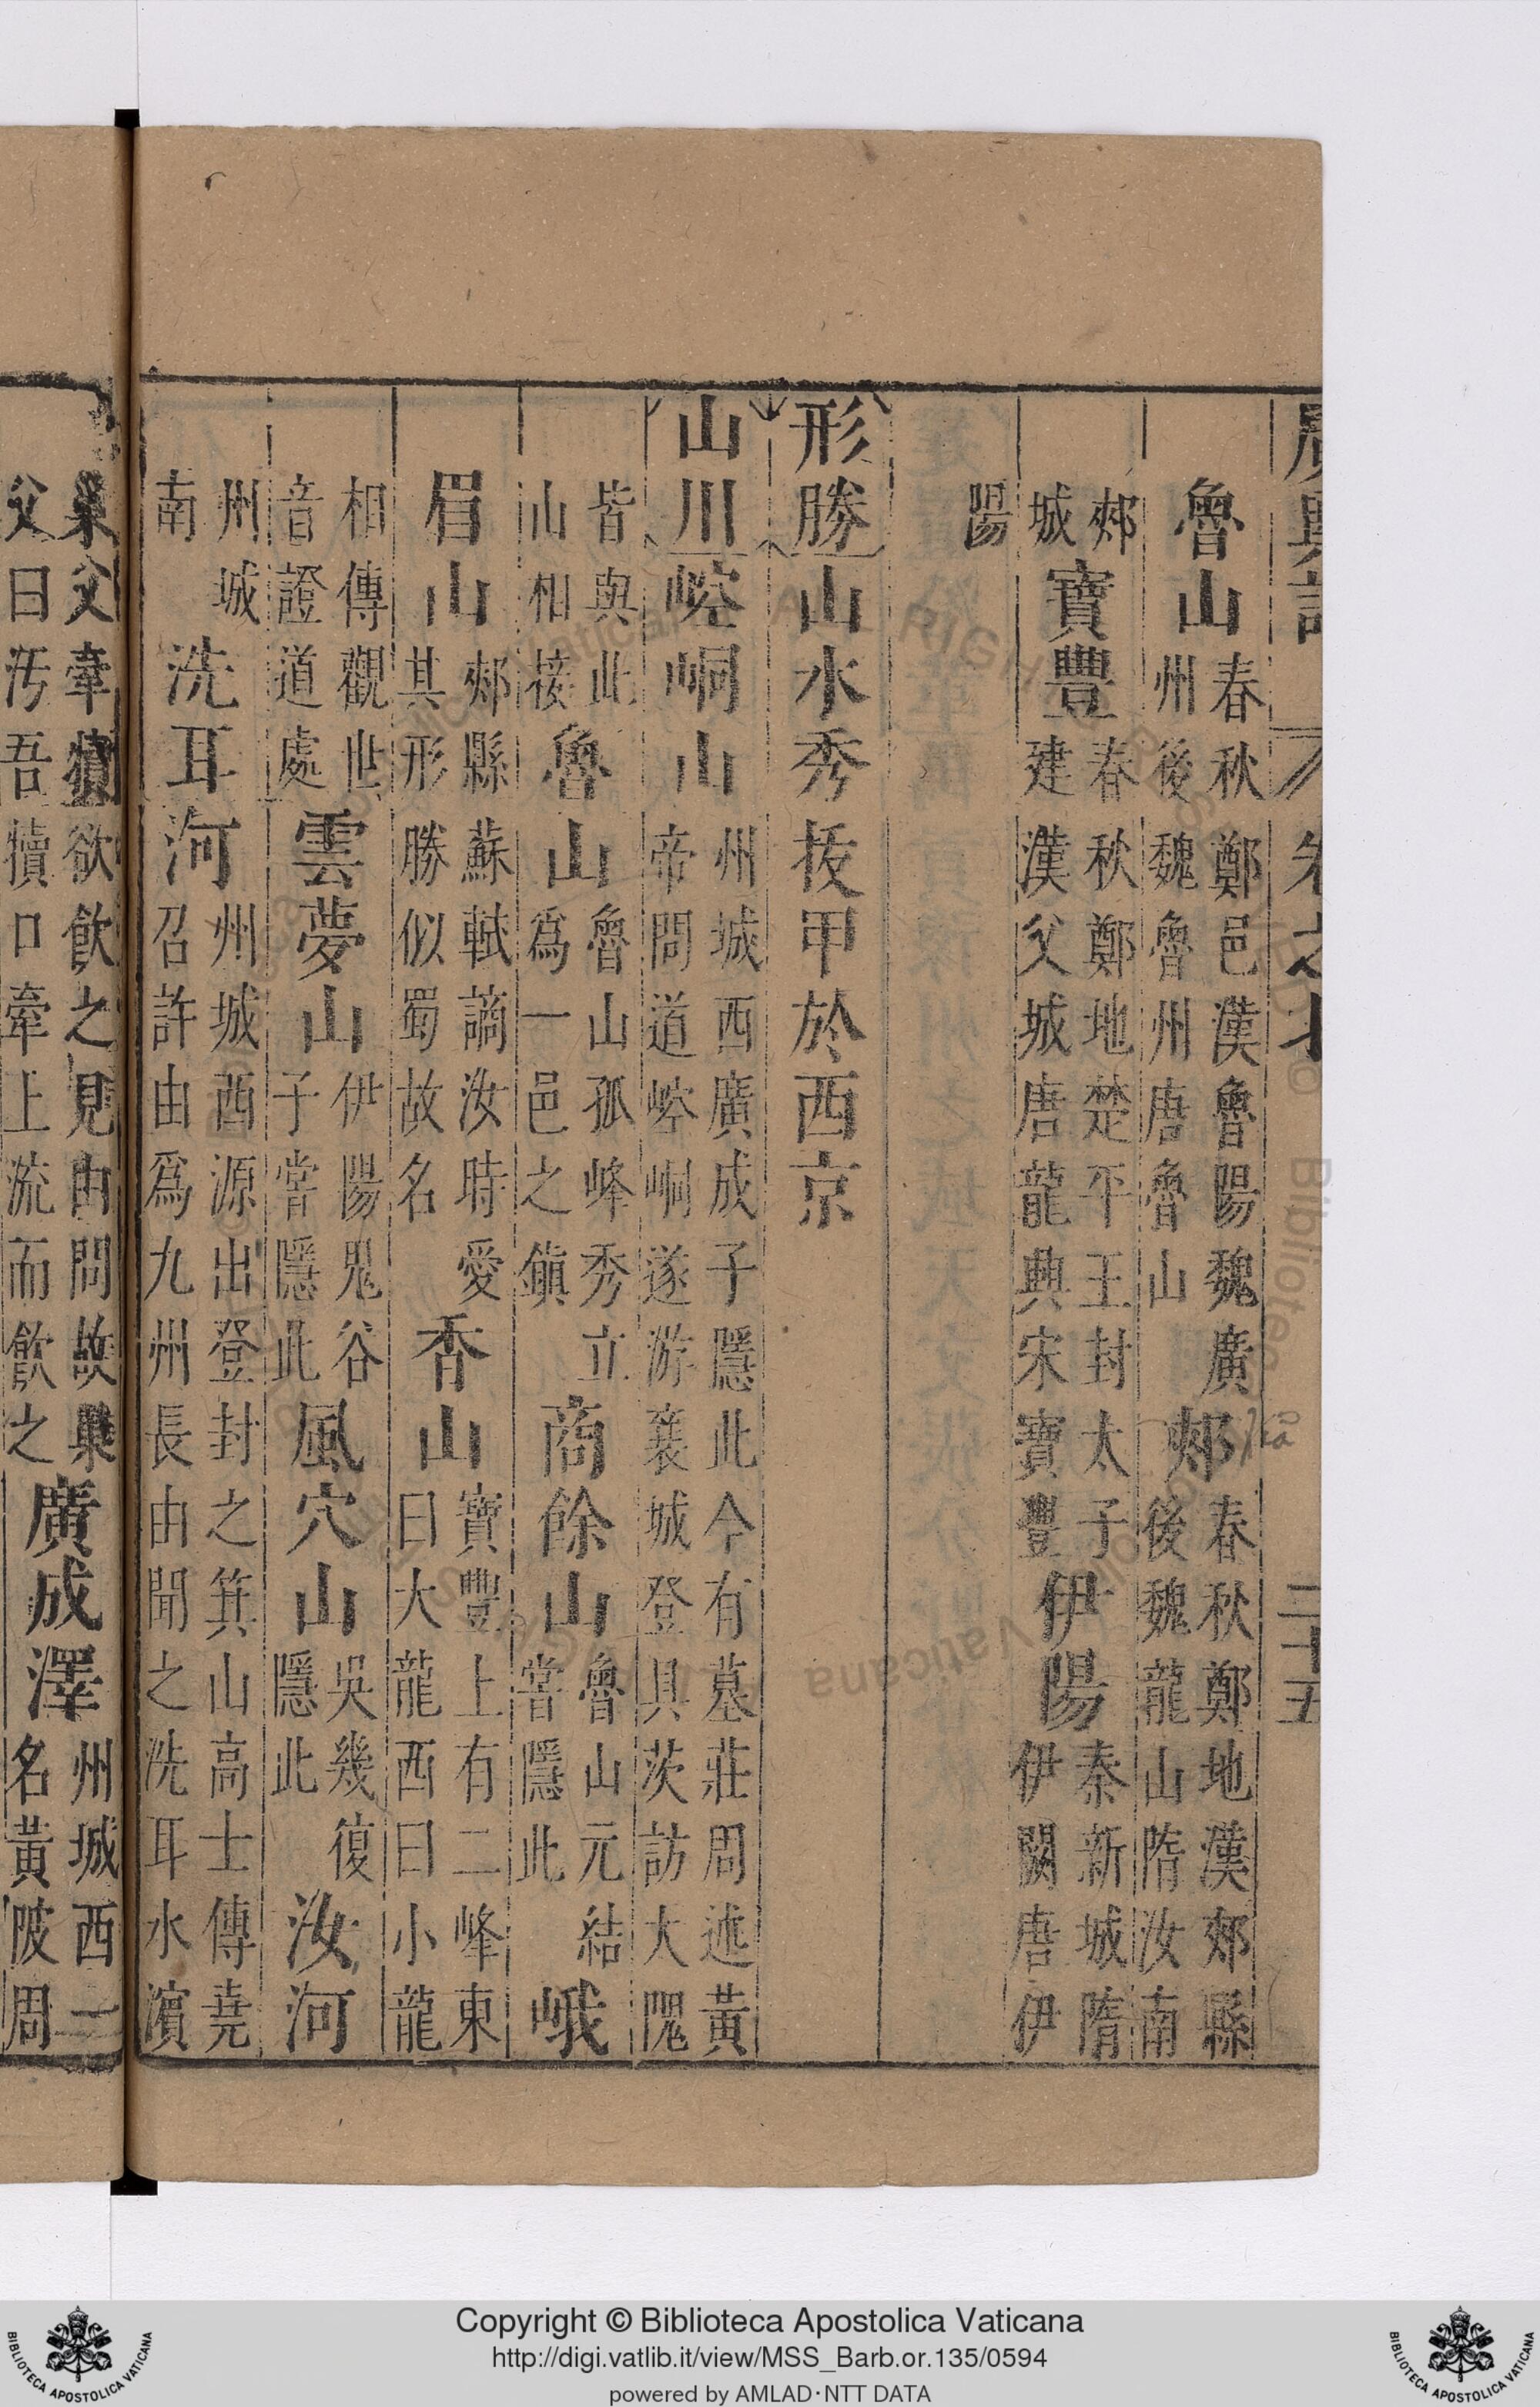 廣輿記 卷之 二十五
魯山春秋鄭邑漢魯陽魏廣州後魏魯州唐魯山郟春秋鄭地漢郟縣後魏龍山隋汝南
郟城寶豐春秋鄭地楚平王封太子建漢父城唐龍典宋寶豐伊陽秦新城隋伊闕唐伊
陽
形勝山水秀拔甲於西京
山川崆峒山州城西廣成子隱此今有墓莊周述黃帝問道崆峒遂游襄城登具茨訪大隗
皆與此山相接魯山魯山孤峰秀立爲一邑之鎭商餘山魯山元結嘗隱此峨
眉山郟縣蘇軾謫汝時愛其形勝似蜀故名香山寶豐上有二峰東曰大龍西曰小龍
相傳觀世音證道處雲夢山伊陽鬼谷子嘗隱此風穴山吳幾復隱此汝河
州城南洗耳河州城西源出登封之箕山高士傳堯召許由爲九州長由聞之洗耳水濵
巢父牽犢欲飲之見由問故巢父曰汚吾犢口牽上流而飲之廣成澤州城西一名黃陂周
Copyright © Biblioteca Apostolica Vaticana
http://digi.vatlib.it/view/MSS_Barb.or.135/0594
powered by AMLAD·NTT DATA
BIBLIOTECA APOSTOLICA VATICANA
BIBLIOTECA APOSTOLICA VATICANA